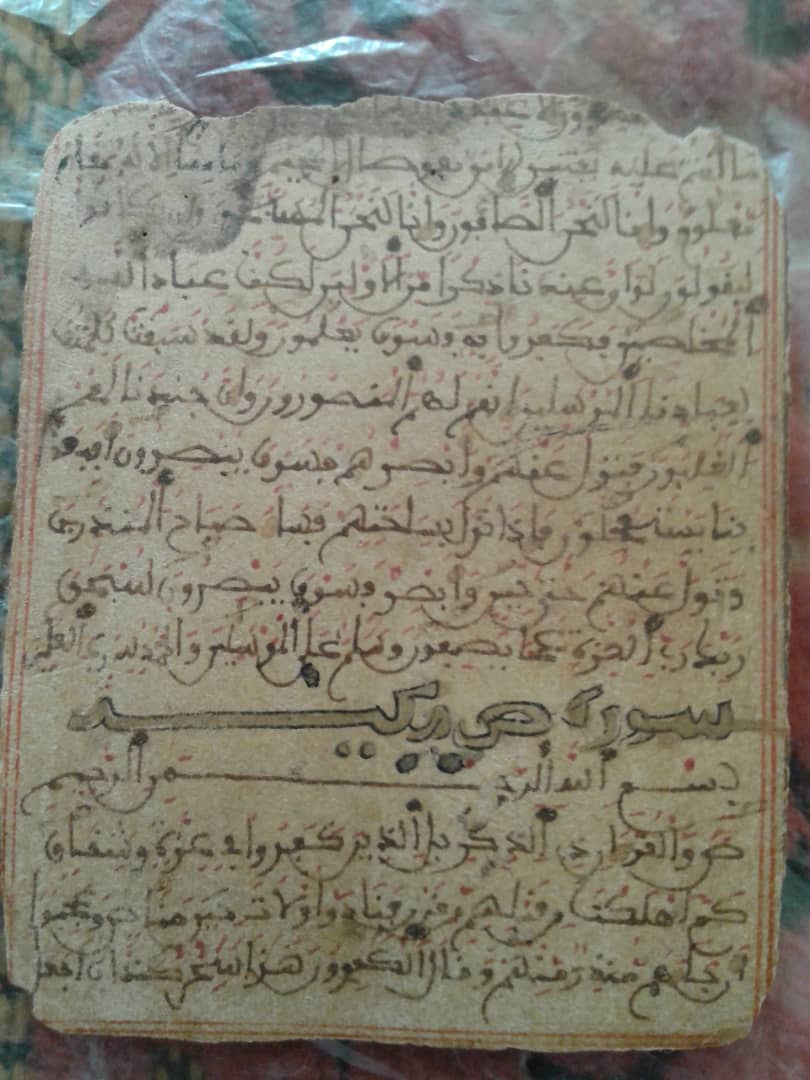 ما أنتم عليه بفتنين إلا من هو صال الجحيم وما منا إلا له مقام
معلوم وإنا لنحن الصافون وإنا لنحن المسبحون وإن كانوا
ليقولون لو أن عندنا ذكرا من الأولين لكنا عباد الله
المخلصين فكفروا به فسوف يعلمون ولقد سبقت كلمتنا
لعبادنا المرسلين إنهم لهم المنصورون وإن جندنا لهم
الغلبون فتول عنهم حتى حين وأبصرهم فسوف يبصرون أفبعذا
بنا يستعجلون فإذا نزل بساحتهم فساء صباح المنذرين
وتول عنهم حتى حين وأبصر فسوف يبصرون سبحن
ربك رب العزة عما يصفون وسلم على المرسلين والحمد لله رب العلمين
سورة ص مكية
بسم الله الرحمن الرحيم
ص والقرءان ذي الذكر بل الذين كفروا في عزة وشقاق
كم أهلكنا من قبلهم من قرن فنادوا ولات حين مناص وعجبوا
أن جاءهم منذر منهم وقال الكفرون هذا سحر كذاب أجعل